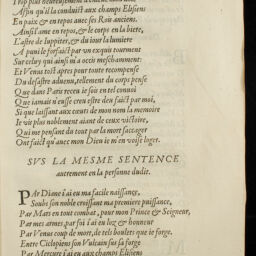 Affin qu'il la conduict aux champs Elisiens
En paix & en repos auec ses Rois anciens.
Ainsi l'ame en repos, & le corps en la biere,
L'astre de Iuppiter, & du iour la lumiere
A puni le forfaict par un exquis tourment
Sur celuy qui ainsi m'a occis meschamment:
Et Venus tost apres pour toute recompense
Du desastre aduenu, tellement du corps pense
Que dans Paris receu ie sois en tel conuoi
Que iamais n'eusse creu estre deu faict par moi,
Si que laissant aux cœurs de mon nom la memoire
Ie vis plus noblement aiant de ceux victoire,
Qui me pensant du tout par la mort saccager
Ont faict qu'auec mon Dieu ie m'en voise loger.
SVS LA MESME SENTENCE
autrement en la personne dudit.
PAr Diane i'ai eu ma facile naissance,
Soubs son noble croissant ma premiere puissance,
Par Mars en tout combat, pour mon Prince & Seigneur,
Par mes armes, par foi i'ai eu loz & honneur
Par Venus coup de mort, de tels boulets que ie forge,
Entre Ciclopiens son Vulcain sus sa forge
Par Mercure i'ai eu aux champs Elisiens